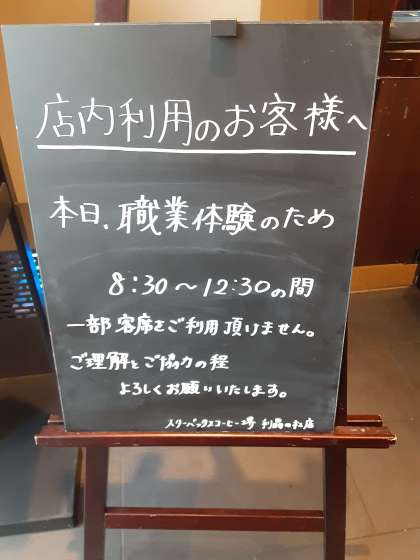 店内利用のお客様へ
本日、職業体験のため
8:30～12:30の間
一部客席をご利用頂けません。
ご理解とご協力の程
よろしくお願いいたします。
スターバックスコーヒー堺 利晶の杜店